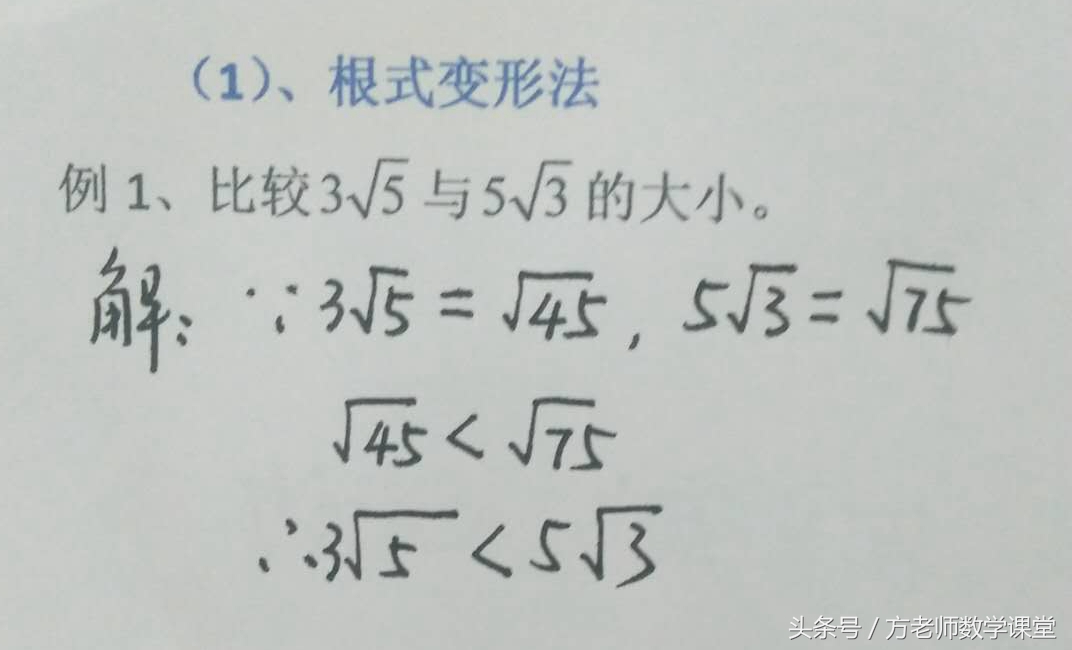 （1）、根式变形法
例 1、比较3√5 与5√3 的大小。
解：∵3√5 = √45，5√3 = √75
√45 < √75
∴3√5 < 5√3
头条号 / 方老师数学课堂